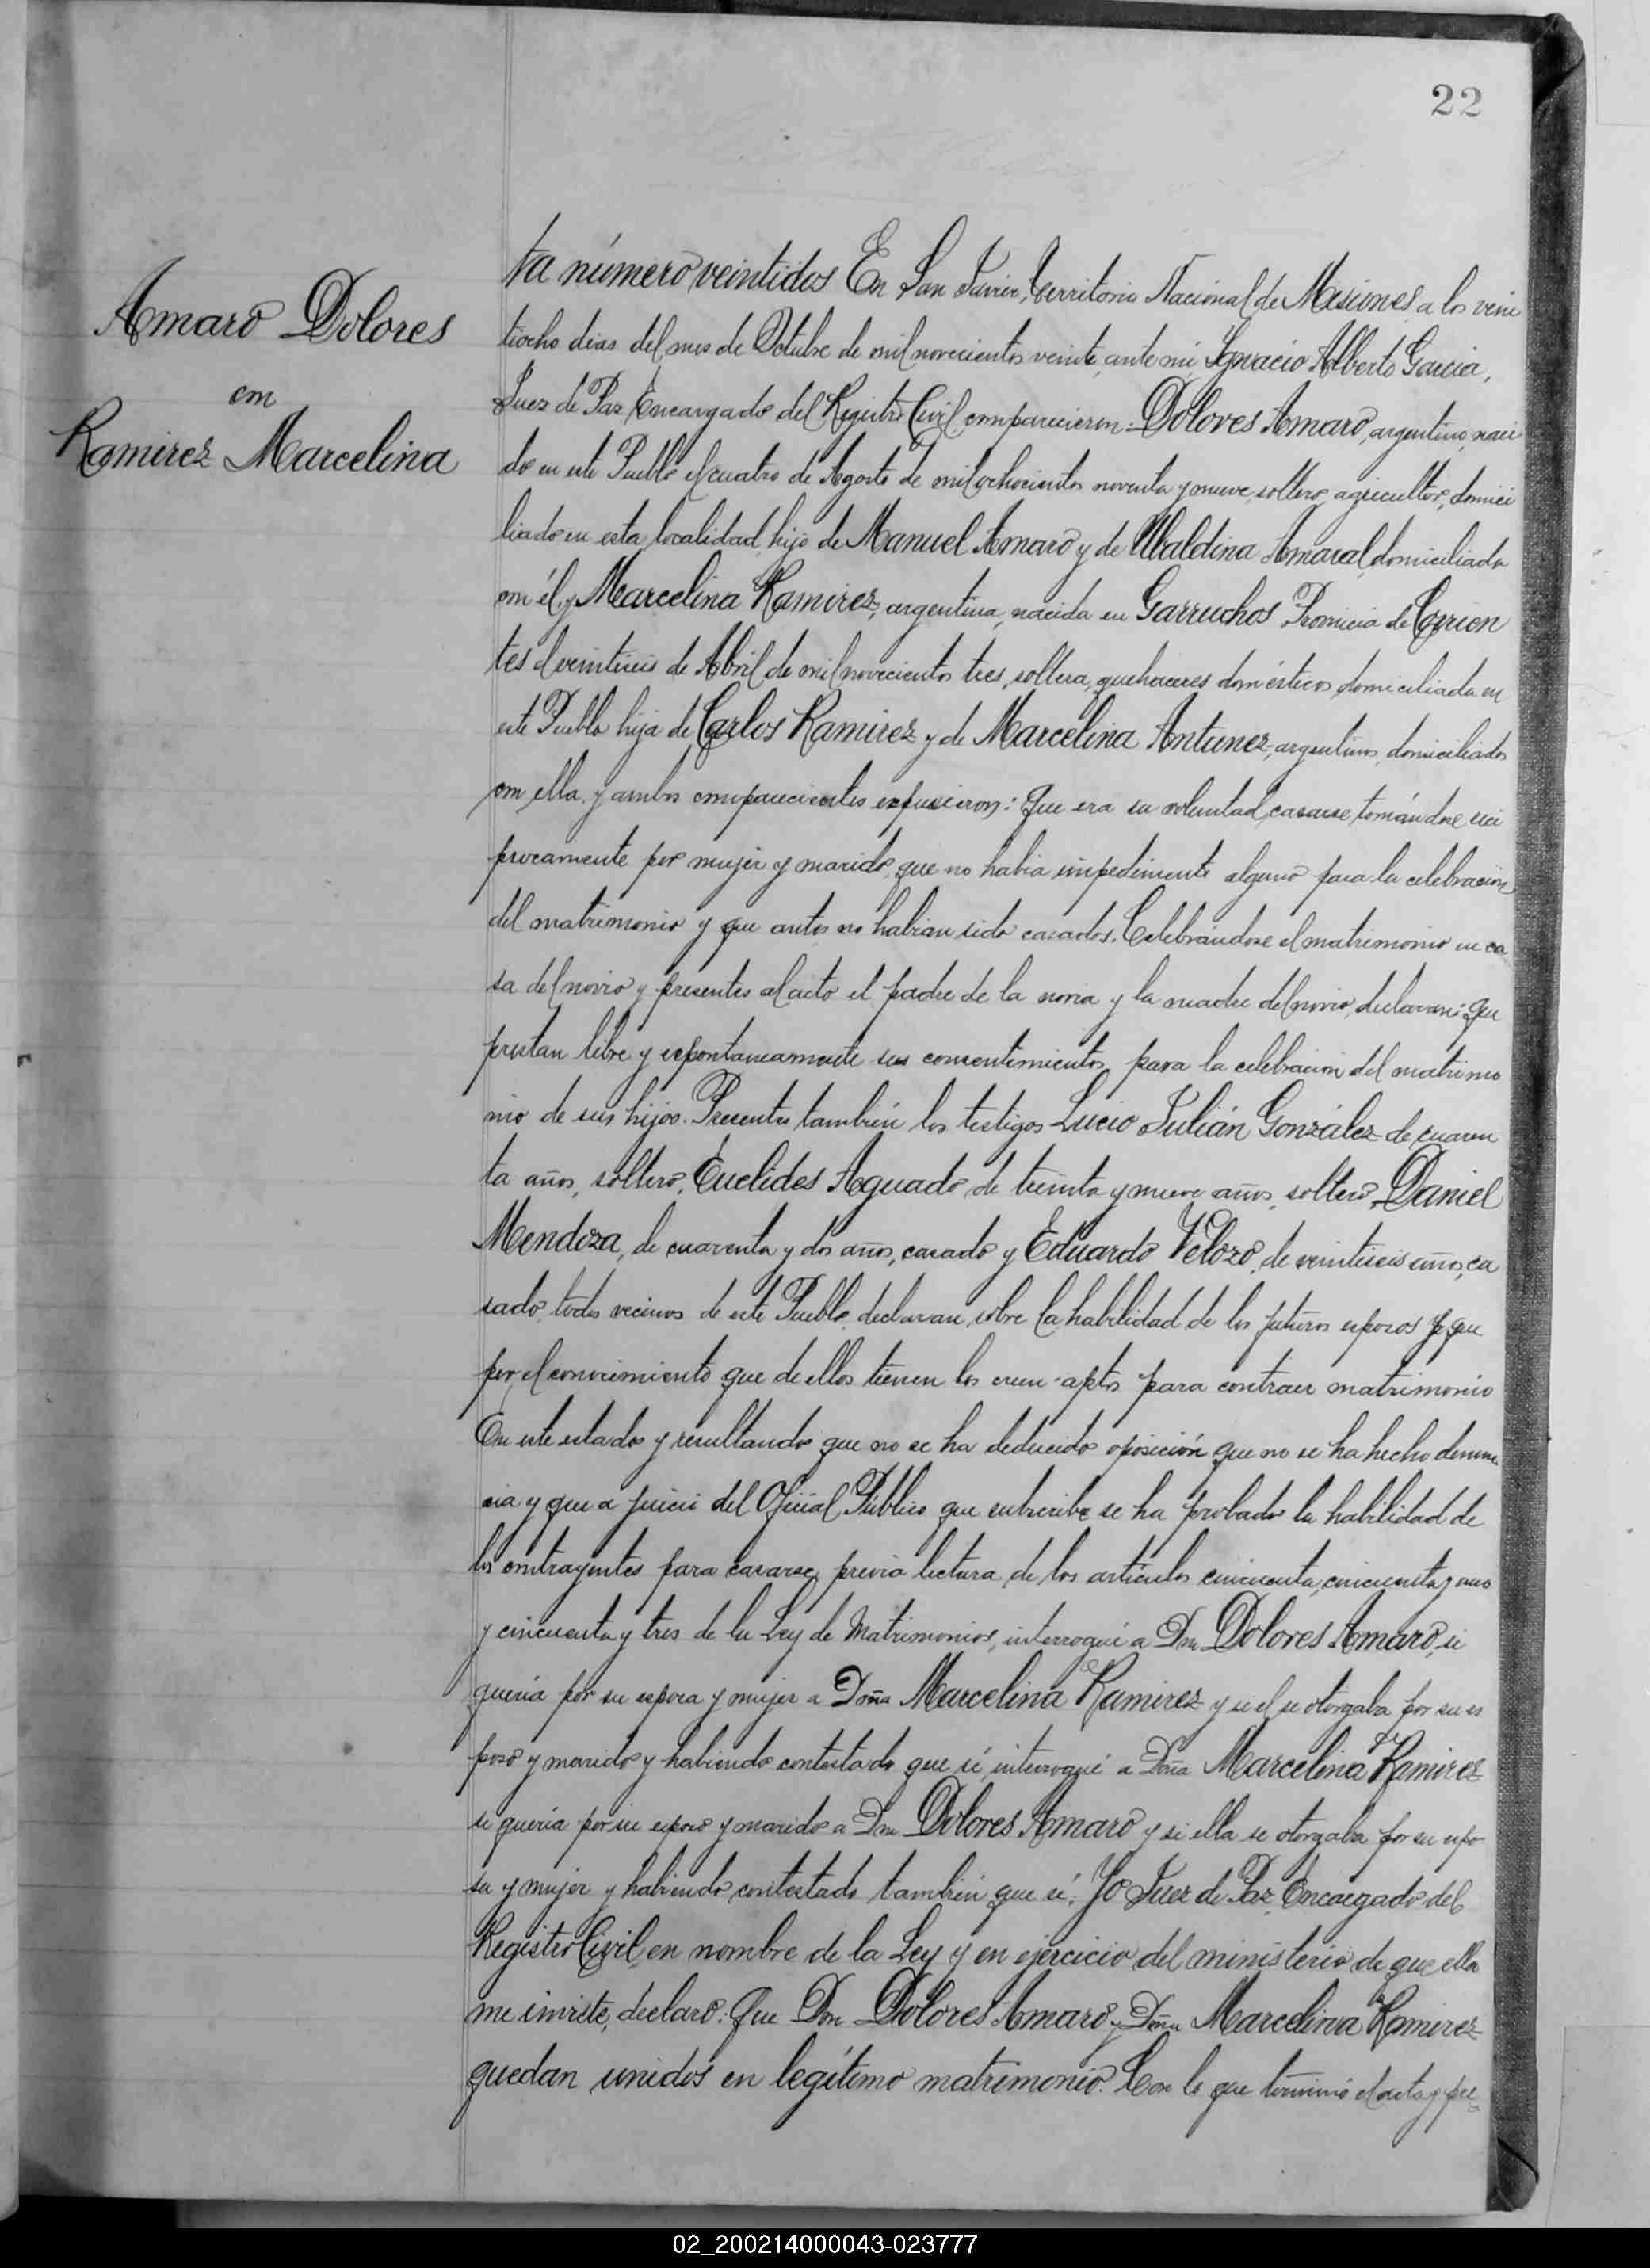 22
Amaro Dolores
con
Ramirez Marcelina
ta número veintidos En San Javier, Territorio Nacional de Misiones a los vein
tiocho dias del mes de Octubre de mil novecientos veinte, ante mí, Ignacio Alberto Garcia,
Juez de Paz Encargado del Registro Civil comparecieron: Dolores Amaro, argentino, naci
do en este Pueblo el cuatro de Agosto de mil ochocientos noventa y nueve, soltero, agricultor, domici
liado en esta localidad, hijo de Manuel Amaro y de Ubaldina Amaral, domiciliada
con él, y Marcelina Ramirez, argentina, nacida en Garruchos Provincia de Corrien
tes el veintiseis de Abril de mil novecientos tres, soltera, quehaceres domésticos, domiciliada en
este Pueblo hija de Carlos Ramirez y de Marcelina Antunez, argentinos, domiciliados
con ella, y ambos comparecientes expusieron: Que era su voluntad, casarse tomándose reci
procamente por mujer y marido, que no habia impedimento alguno para la celebración
del matrimonio y que antes no habian sido casados. Celebrándose el matrimonio en ca
sa del novio y presentes al acto el padre de la novia y la madre del novio, declaran: que
prestan libre y espontaneamente sus consentimientos para la celebracion del matrimo
nio de sus hijos. Presentes también los testigos Lucio Julián González de cuaren
ta años, soltero, Euclides Aguado, de treinta y nueve años, soltero, Daniel
Mendoza, de cuarenta y dos años, casado y Eduardo Velozo, de veintiseis años, ca
sado, todos vecinos de este Pueblo, declaran, sobre la habilidad de los futuros esposos y que
por el conocimiento que de ellos tienen los creen aptos para contraer matrimonio
En este estado y resultando que no se ha deducido oposición que no se ha hecho denun
cia y que a juicio del Oficial Público que subscribe se ha probado la habilidad de
los contrayentes para casarse, previa lectura de los artículos cincuenta, cincuenta y uno
y cincuenta y tres de la Ley de Matrimonios, interrogué a Don Dolores Amaro, si
queria por su esposa y mujer a Doña Marcelina Ramirez y si el se otorgaba por su es
poso y marido y habiendo contestado que sí, interrogué a Doña Marcelina Ramirez
si queria por su esposo y marido a Don Dolores Amaro y si ella se otorgaba por su espo
sa y mujer y habiendo contestado también que sí; Yo Juez de Paz Encargado del
Registro Civil, en nombre de la Ley y en ejercicio del ministerio de que ella
me inviste, declaro: Que Don Dolores Amaro y Doña Marcelina Ramirez
quedan unidos en legítimo matrimonio. Con lo que terminó el acta y pre
02_200214000043-023777